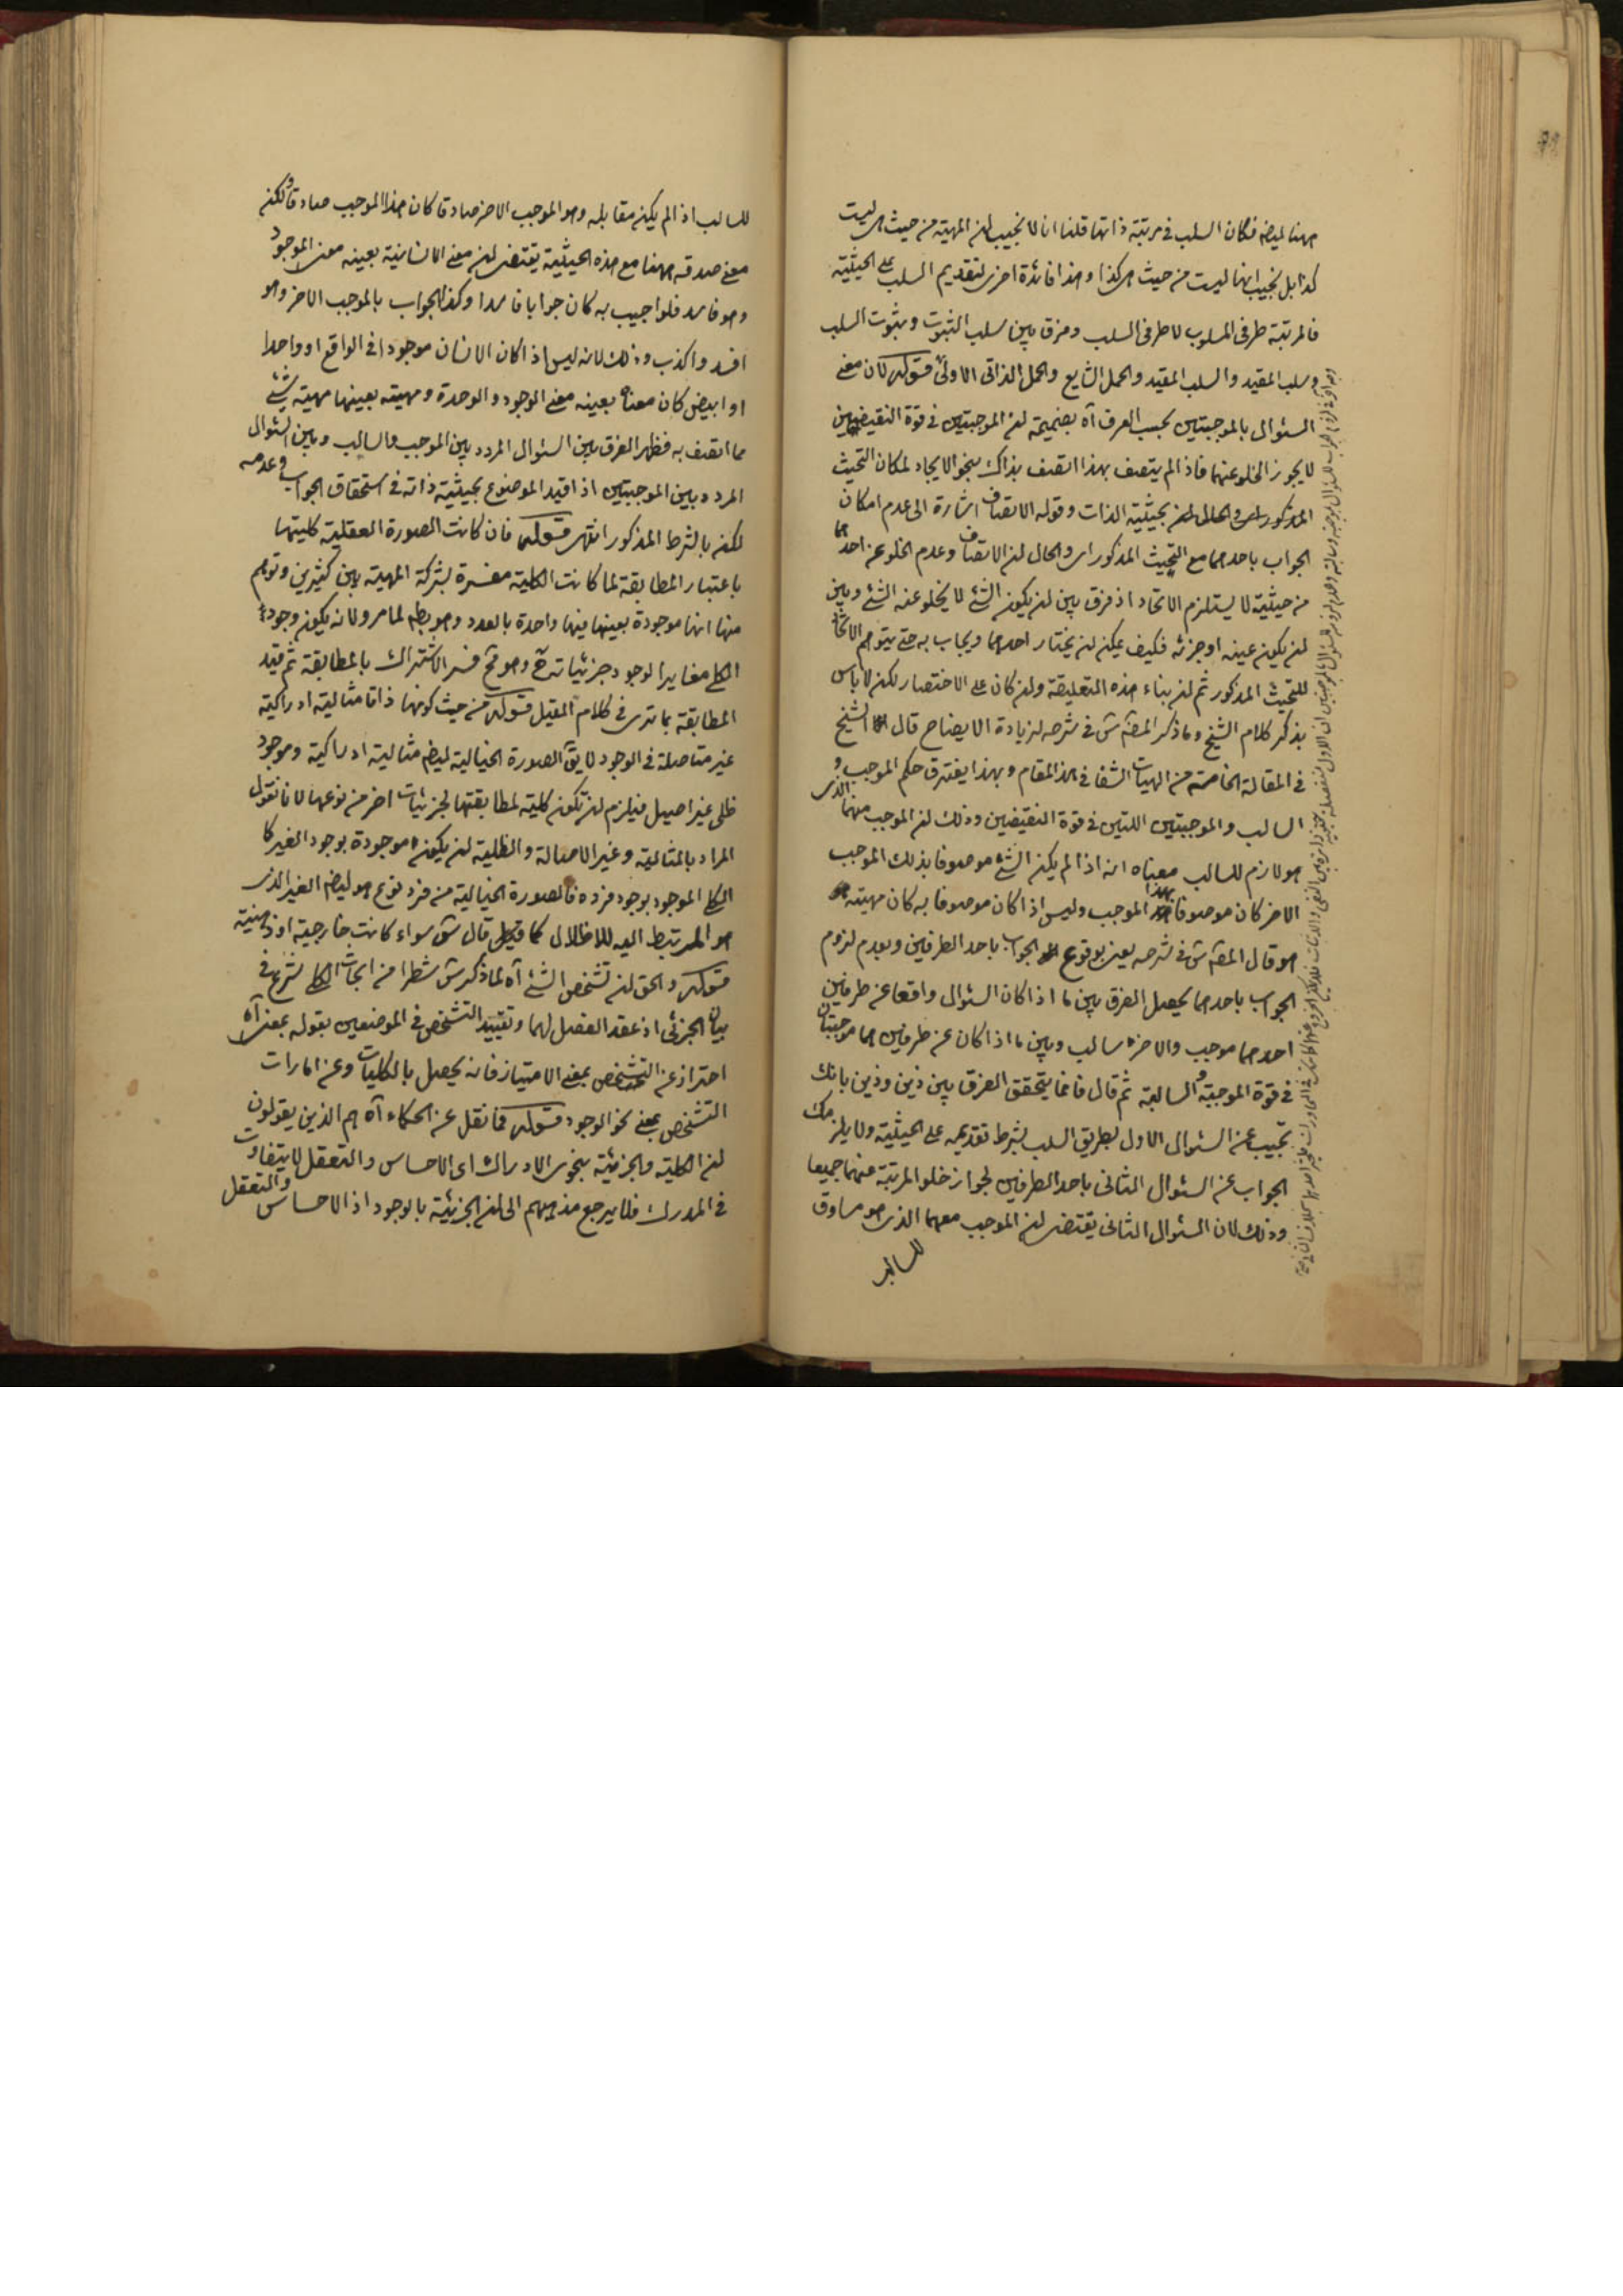 ههنا ليضه فكان السلب فى مرتبة ذاتها قلنا انا لا نجيب لان المهية من حيث هى ليست
كذا بل نجيب انها ليست من حيث هى كذا وهذا فائدة اخرى لتقديم السلب على الحيثية
فالمرتبة ظرف المسلوب لا ظرف السلب وفرق بين سلب الثبوت وثبوت السلب
وسلب المقيد والسلب المقيد والحمل الشايع والحمل الذاتى الاولى قوله كان معنى
السئوال بالموجبتين بحسب العرف آه بضميمة ان الموجبتين فى قوة النقيضين
لا يجوز الخلو عنهما فاذا لم يتصف بهذا اتصف بذاك بنحو الايجاد لمكان التحيث
المذكور اى والحال ان بحيثية الذات وقوله الاتصاف اشارة الى عدم امكان
الجواب باحدهما مع التحيث المذكور اى والحال ان الاتصاف وعدم الخلو عن احدهما
من حيثية لا يستلزم الاتحاد اذ فرق بين ان يكون الشئ لا يخلو عنه الشئ وبين
ان يكون عينه او جزئه فكيف يمكن ان يختار احدهما ويجاب به حتى يتوهم الاتحاد
للتحيث المذكور ثم ان بناء هذه التعليقة وان كان على الاختصار لكن لا باس
بذكر كلام الشيخ وما ذكر المصه س فى شرحه لزيادة الايضاح قال الشيخ
فى المقالة الخامسة من الهيات الشفا فى هذا المقام وبهذا يفترق حكم الموجب و
السالب والموجبتين اللتين فى قوة النقيضين وذلك ان الموجب منهما الذى
هو لازم للسالب معناه انه اذا لم يكن الشئ موصوفا بذلك الموجب
الاخر كان موصوفا بهذا الموجب وليس اذا كان موصوفا به كان مهيته هو
هو قال المصه س فى شرحه يعنى بوقوع الجواب باحد الطرفين وبعدم لزوم
الجواب باحدهما يحصل الفرق بين ما اذا كان السئوال واقعا عن طرفين
احدهما موجب والاخر سالب وبين ما اذا كان عن طرفين هما موجبتان
فى قوة الموجبة والسالبة ثم قال فانما يتحقق الفرق بين ذين وذين بانك
تجيب عن السئوال الاول بطريق السلب بشرط تقديمه على الحيثية ولا يلزمك
الجواب عن السئوال الثانى باحد الطرفين لجواز خلو المرتبة عنهما جميعا
وذلك لان السئوال الثانى يقتضى ان الموجب معهما الذى هو مساوق
للسالب
للسالب اذا لم يكن مقابله وهو الموجب الاخر صادقا كان هذا الموجب صادقا ولكن
معنى صدقه ههنا مع هذه الحيثية يقتضى ان معنى الانسانية بعينه معنى الموجود
وهو فاسد فلو اجيب به كان جوابا فاسدا وكذا الجواب بالموجب الاخر وهو
افسد واكذب وذلك لانه ليس اذا كان الانسان موجودا فى الواقع او واحدا
او ابيض كان معناه بعينه معنى الوجود والوحدة ومهيته بعينها مهية شئ
مما اتصف به فظهر الفرق بين السئوال المردد بين الموجب والسالب وبين السئوال
المردد بين الموجبتين اذا قيد الموضوع بحيثية ذاته فى استحقاق الجواب وعدمه
لكن بالشرط المذكور انتهى قوله فان كانت الصورة العقلية كليتها
باعتبار المطابقة لما كانت الكلية مفسرة بشركة المهية بين كثيرين وتوهم
منها انها موجودة بعينها فيها واحدة بالعدد وهو بط لما مر ولانه يكون وجود
الكلى مغايرا لوجود جزئياته ح وهو قح فسر الاشتراك بالمطابقة ثم قيد
المطابقة بما ترى فى كلام المقيل قوله من حيث كونها ذاتا مثالية ادراكية
غير متاصلة فى الوجود لا يق الصورة الخيالية ليضه مثالية ادراكية وموجود
ظلى غير اصيل فيلزم ان تكون كلية لمطابقتها لجزئيات اخر من نوعها لانا نقول
المراد بالمثالية وغير الاصالة والظلية ان يكون موجودة بوجود الغير كا
الكلى الموجود بوجود فرده فالصورة الخيالية من فرد نوع هو ليضه الغير الذى
هو المرتبط اليه للاظلال كما قال س سواء كانت خارجية او ذهنية
قوله والحق ان تشخص الشئ آه لما ذكر س شطرا من ابحاث الكلى شرع فى
بيان الجزئى اذ عقد الفصل لهما وتقييد التشخص فى الموضعين بقوله بمعنى آه
احتراز عن التشخص بمعنى الامتياز فانه يحصل بالكليات وعن امارات
التشخص بمعنى نحو الوجود قوله فما نقل عن الحكماء آه هم الذين يقولون
ان الكلية والجزئية بنحوى الادراك اى الاحساس والتعقل لا بتفاوت
فى المدرك فلا يرجع مذهبهم الى ان الجزئية بالوجود اذ الاحساس والتعقل